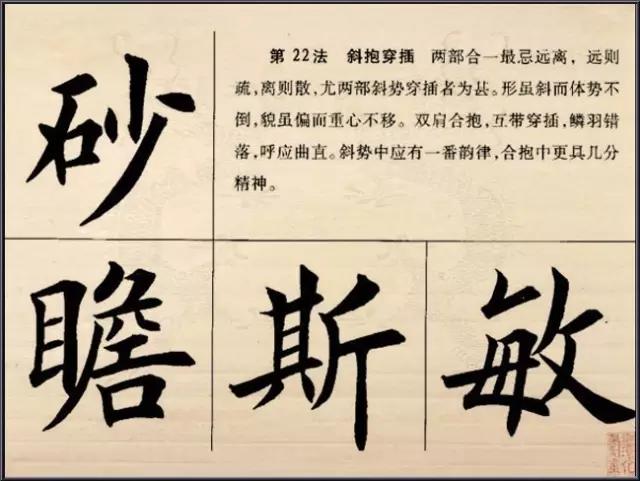 砂
第22法 斜抱穿插 两部合一最忌远离，远则
疏，离则散，尤两部斜势穿插者为甚。形虽斜而体势不
倒，貌虽偏而重心不移。双肩合抱，互带穿插，鳞羽错
落，呼应曲直。斜势中应有一番韵律，合抱中更具几分
精神。
瞻 斯 敏